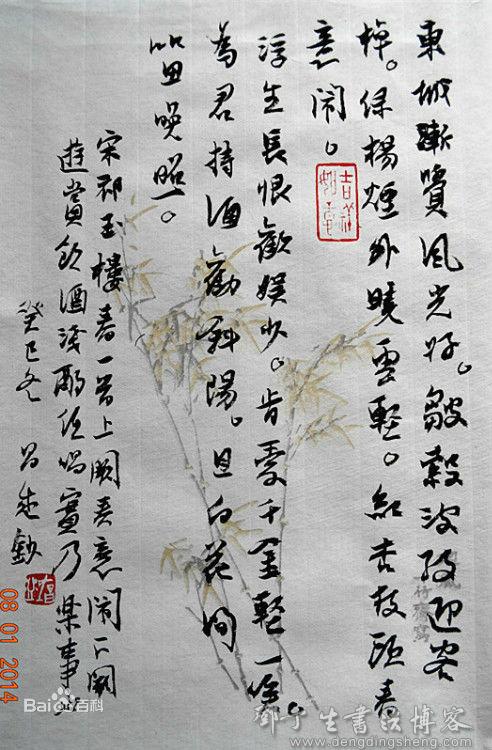 東城漸覺風光好。皺縠波紋迎客
棹。綠楊煙外曉雲輕。紅杏枝頭春
意闹。
吉祥如意
浮生長恨歡娱少。肯愛千金輕一笑。
為君持酒勸斜陽。且向花間
留晚照。
宋祁玉樓春一首上闕春意闹下闕
遊賞飲酒淺酌低唱實乃樂事
癸巳冬
08 01 2014
Bai百科
邓丁生書法博客
www.dengdingsheng.com